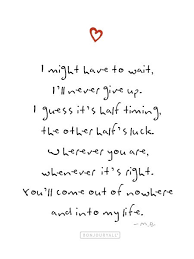 I might have to wait,
I'll never give up.
I guess it's half timing,
the other half's luck.
Wherever you are,
whenever it's right.
You'll come out of nowhere
and into my life.
- M.B.
BONJOURVALE